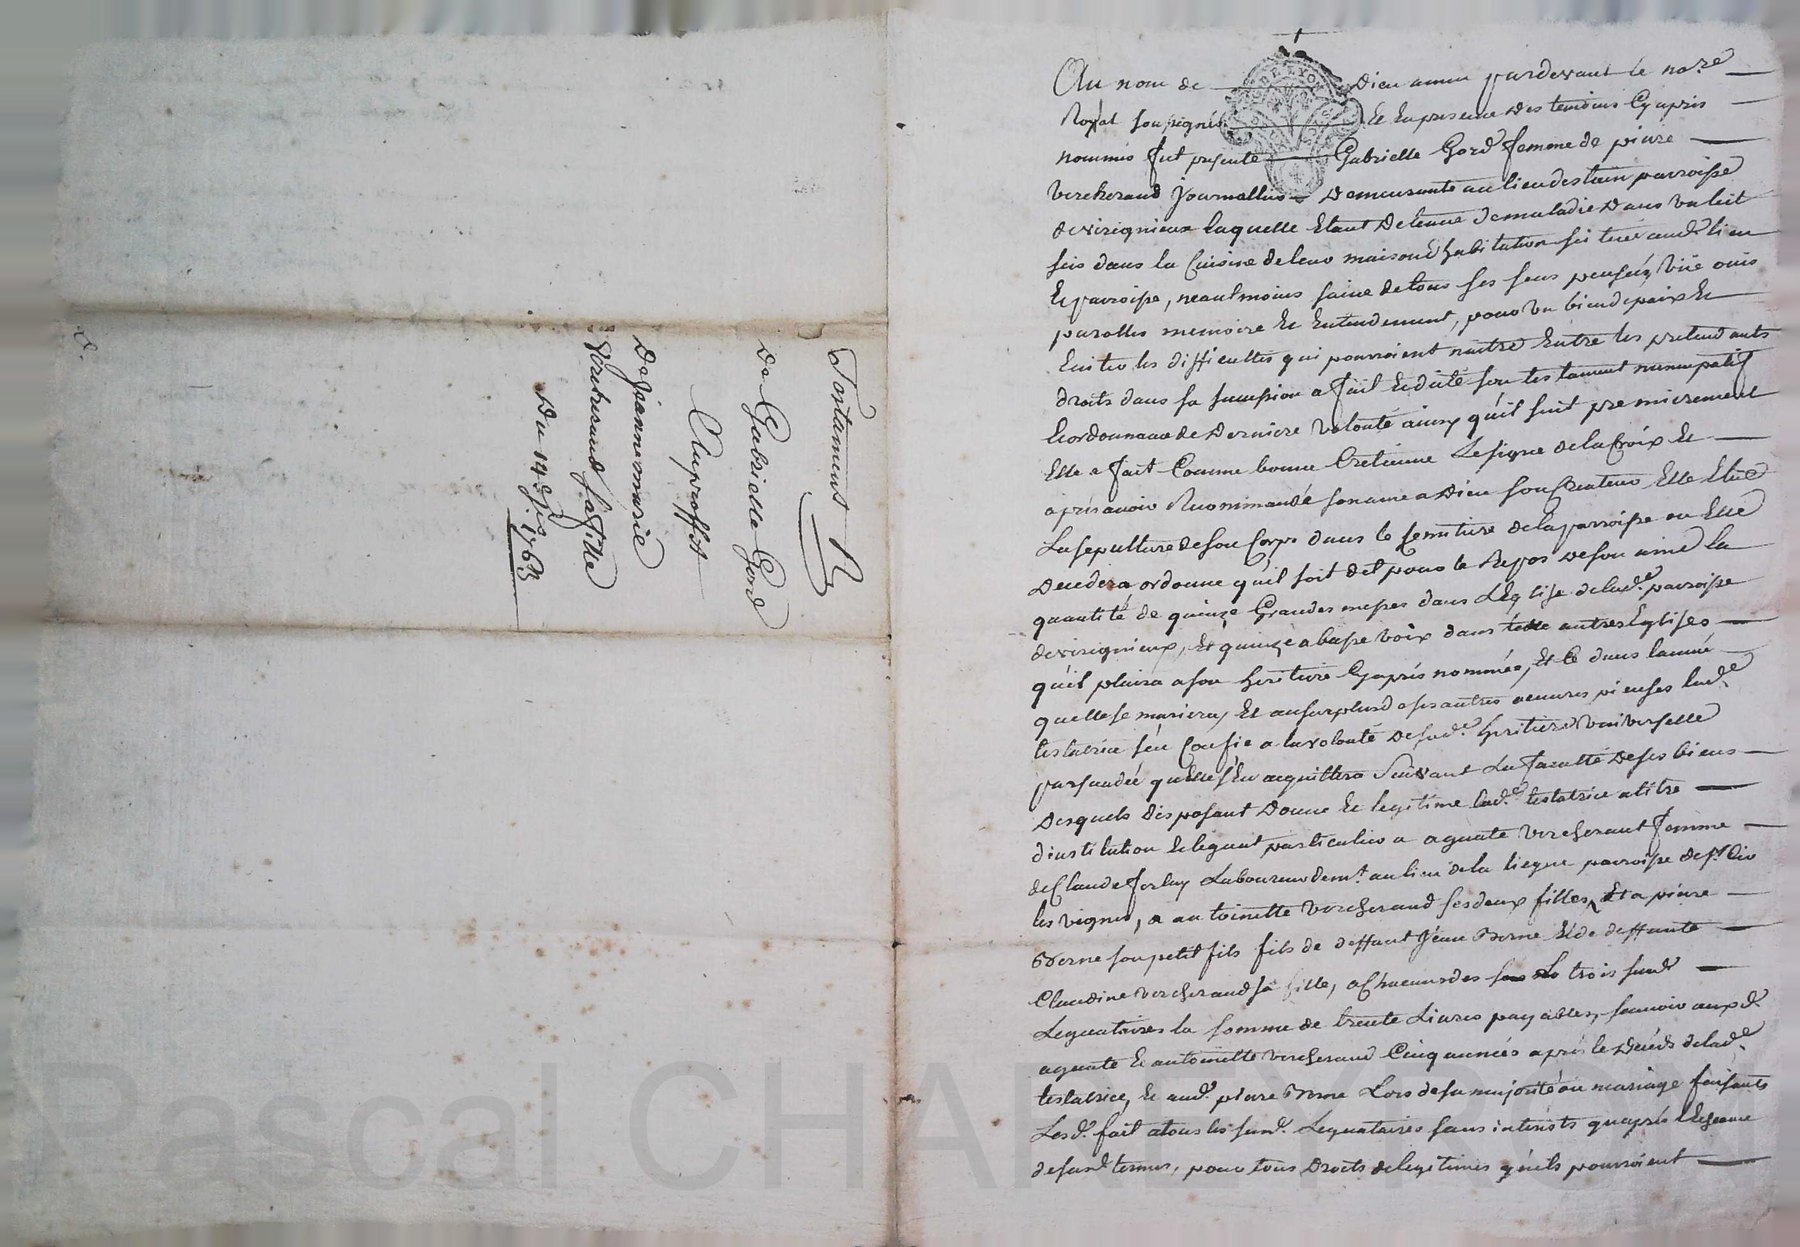 Testament
De Gabrielle Gord
Auproffit
De Jeanne marie
Verchesand sa fille
Du 14 9bre 1763
Au nom de Dieu amen pardevant le no.re
Royal soussigné Et En presence Des temoins Cy apres
nommés fut presente Gabrielle Gord femme de pierre
Vercherand Journallier Demeurante au lieu destain parroisse
de virignieux laquelle Etant Detenue de maladie Dans un lit
sis dans la Cuisine de leur maison d'habitation scituée aud. lieu
Et parroisse, neantmoins saine de tous ses sens pensées, Vüe ouie
parolles memoire Et Entendement, pour un bien de paix Et
Eviter les difficultés qui pourroient naitre Entre les pretendants
droits dans sa succession a fait Et dicté son testament nuncupatif
Et ordonnance de Derniere Volonté ainsy qu'il suit premierement
Elle a fait Comme bonne Cretienne Le signe de la Croix Et
apres avoir Recommandé son ame a Dieu son Createur Elle Elit
La sepulture de son Corps dans le Cemitiere de la parroisse ou Elle
Decedera, ordonne qu'il soit dit pour le Repos de son ame la
quantité de quinze Grandes messes dans L'Eglise de lad.e parroisse
de virignieux, Et quinze a basse voix dans telle autres Eglises
qu'il plaira a son heritiere Cy apres nommée, Et Ce dans l'année
quelle se mariera, Et au surplus d'oeuvres pieuses lad.e
testatrice s'en Confie a la volonté de sad.e heritiere Universelle
persuadée qu'elle s'En acquittera Suivant La faculté De ses biens
Desquels disposant Donne Et legitime lad.e testatrice a titre
d'institution Et legat particulier a agnate Vercherand femme
de Claude Laboureur dem.t au lieu de la parroisse de
les vignes, a antoinette Vercherand ses deux filles, Et a pierre
Berne son petit fils fils de deffunt Jean Berne Et de deffunte
Claudine Vercherand sa fille, a Chacun des trois susd.
Legataires la somme de trente Livres payables, scavoir auxd.
agnate Et antoinette Vercherand Cinq années apres le Deces de lad.e
testatrice, Et aud. pierre Berne Lors de sa majorité ou mariage faisants
Lesd. fait a tous les susd. Legataires sans interets qu'apres l'Echeance
desusd. termes, pour tous Droits de legitimes qu'ils pourroient
Pascal CHAREYRON